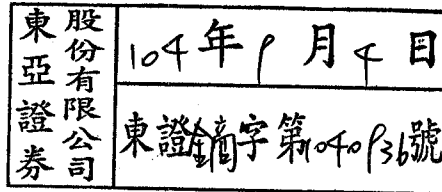 東亞證券
股份有限公司
104年9月4日
東證鎖商字第1040936號